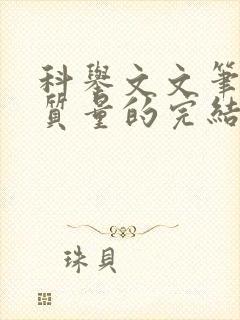 科舉文文筆
質量的完結
珠貝